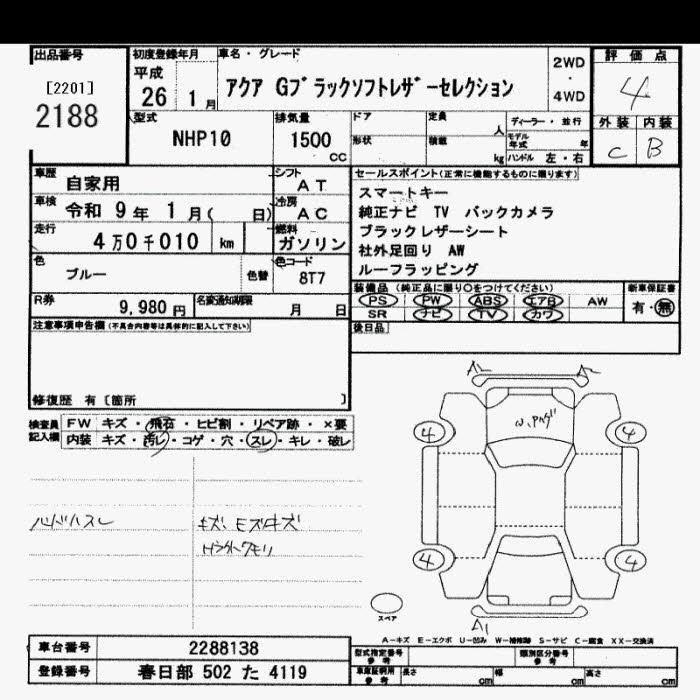 出品番号
[2201]
2188
初度登録年月
平成
26 1月
車名・グレード
アクア Gブラックソフトレザーセレクション
2WD
・
4WD
評価点
4
外装 内装
C B
型式
NHP10
排気量
1500
CC
ドア
形状
定員
人
積載
kg
ディーラー・並行
モデル年式 年
ハンドル 左・右
車歴
自家用
シフト
AT
車検
令和 9年 1月( 日)
冷房
AC
走行
4万0千010 km
燃料
ガソリン
色
ブルー
色替
色コード
8T7
R券
9,980円
名変通知期限
月 日
セールスポイント(正常に機能するものに限ります)
スマートキー
純正ナビ TV バックカメラ
ブラックレザーシート
社外足回り AW
ルーフラッピング
装備品(純正品に限り○をつけてください)
PS PW ABS エアB AW
SR ナビ TV カワ
新車保証書
有・無
後日品
注意事項申告欄(不具合内容等は具体的に記入して下さい)
修復歴 有〔箇所 〕
検査員
記入欄
FW キズ・飛石・ヒビ割・リペア跡・×要
内装 キズ・汚レ・コゲ・穴・スレ・キレ・破レ
ハンドルスレ
キズ、エクボキズ
A2
4
4
4
4
A1
スペア
A-キズ E-エクボ U-凹み W-補修跡 S-サビ C-腐食 XX-交換済
車台番号
2288138
登録番号
春日部 502 た 4119
型式指定番号
参考
類別区分番号
参考
車庫証明用
参考
長さ cm
幅 cm
高さ cm